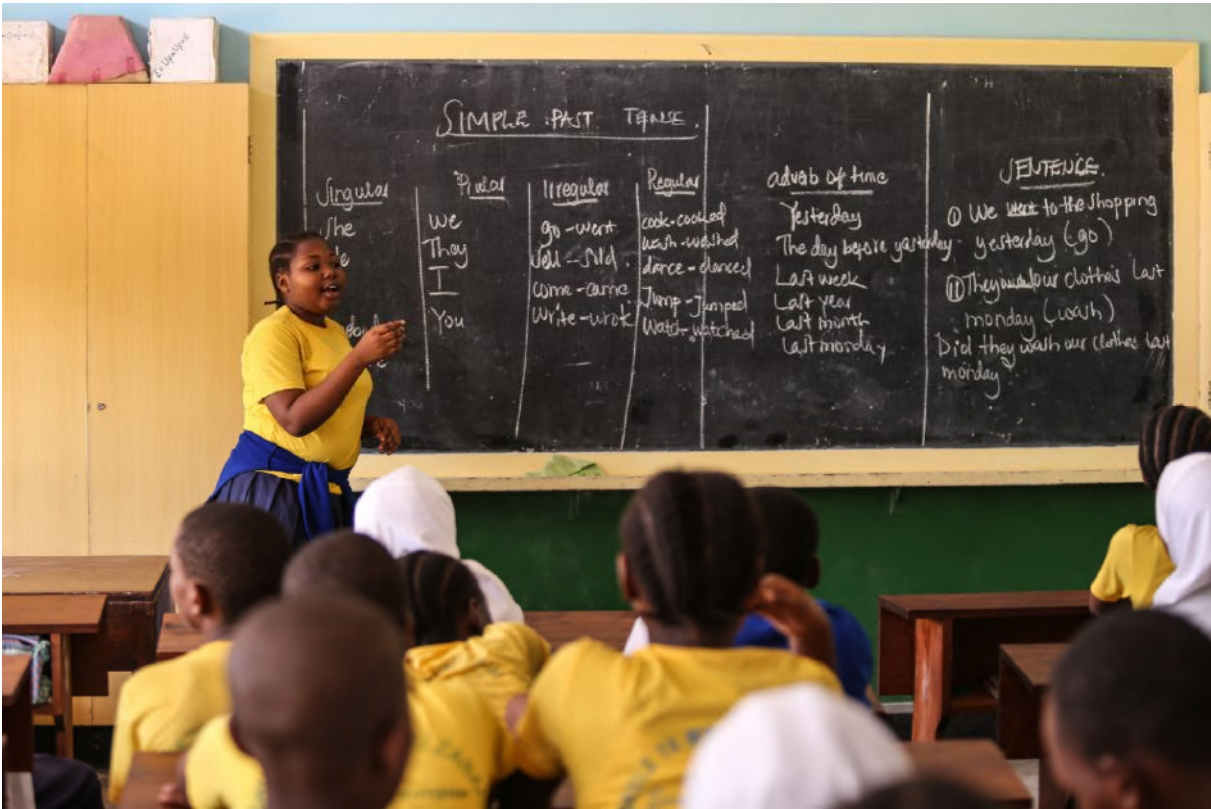 SIMPLE PAST TENSE.
Singular
She
Plular
We
They
I
You
Irregular
go - went
sell - sold
come - came
write - wrote
Regular
cook - cooked
wash - washed
dance - danced
Jump - Jumped
Watch - watched
adverb of time
Yesterday
The day before yesterday
Last week
Last year
Last month
Last monday
SENTENCE.
(i) We went to the shopping
yesterday (go)
(ii) They our clothes Last
monday (wash)
Did they wash our clothes last
monday?